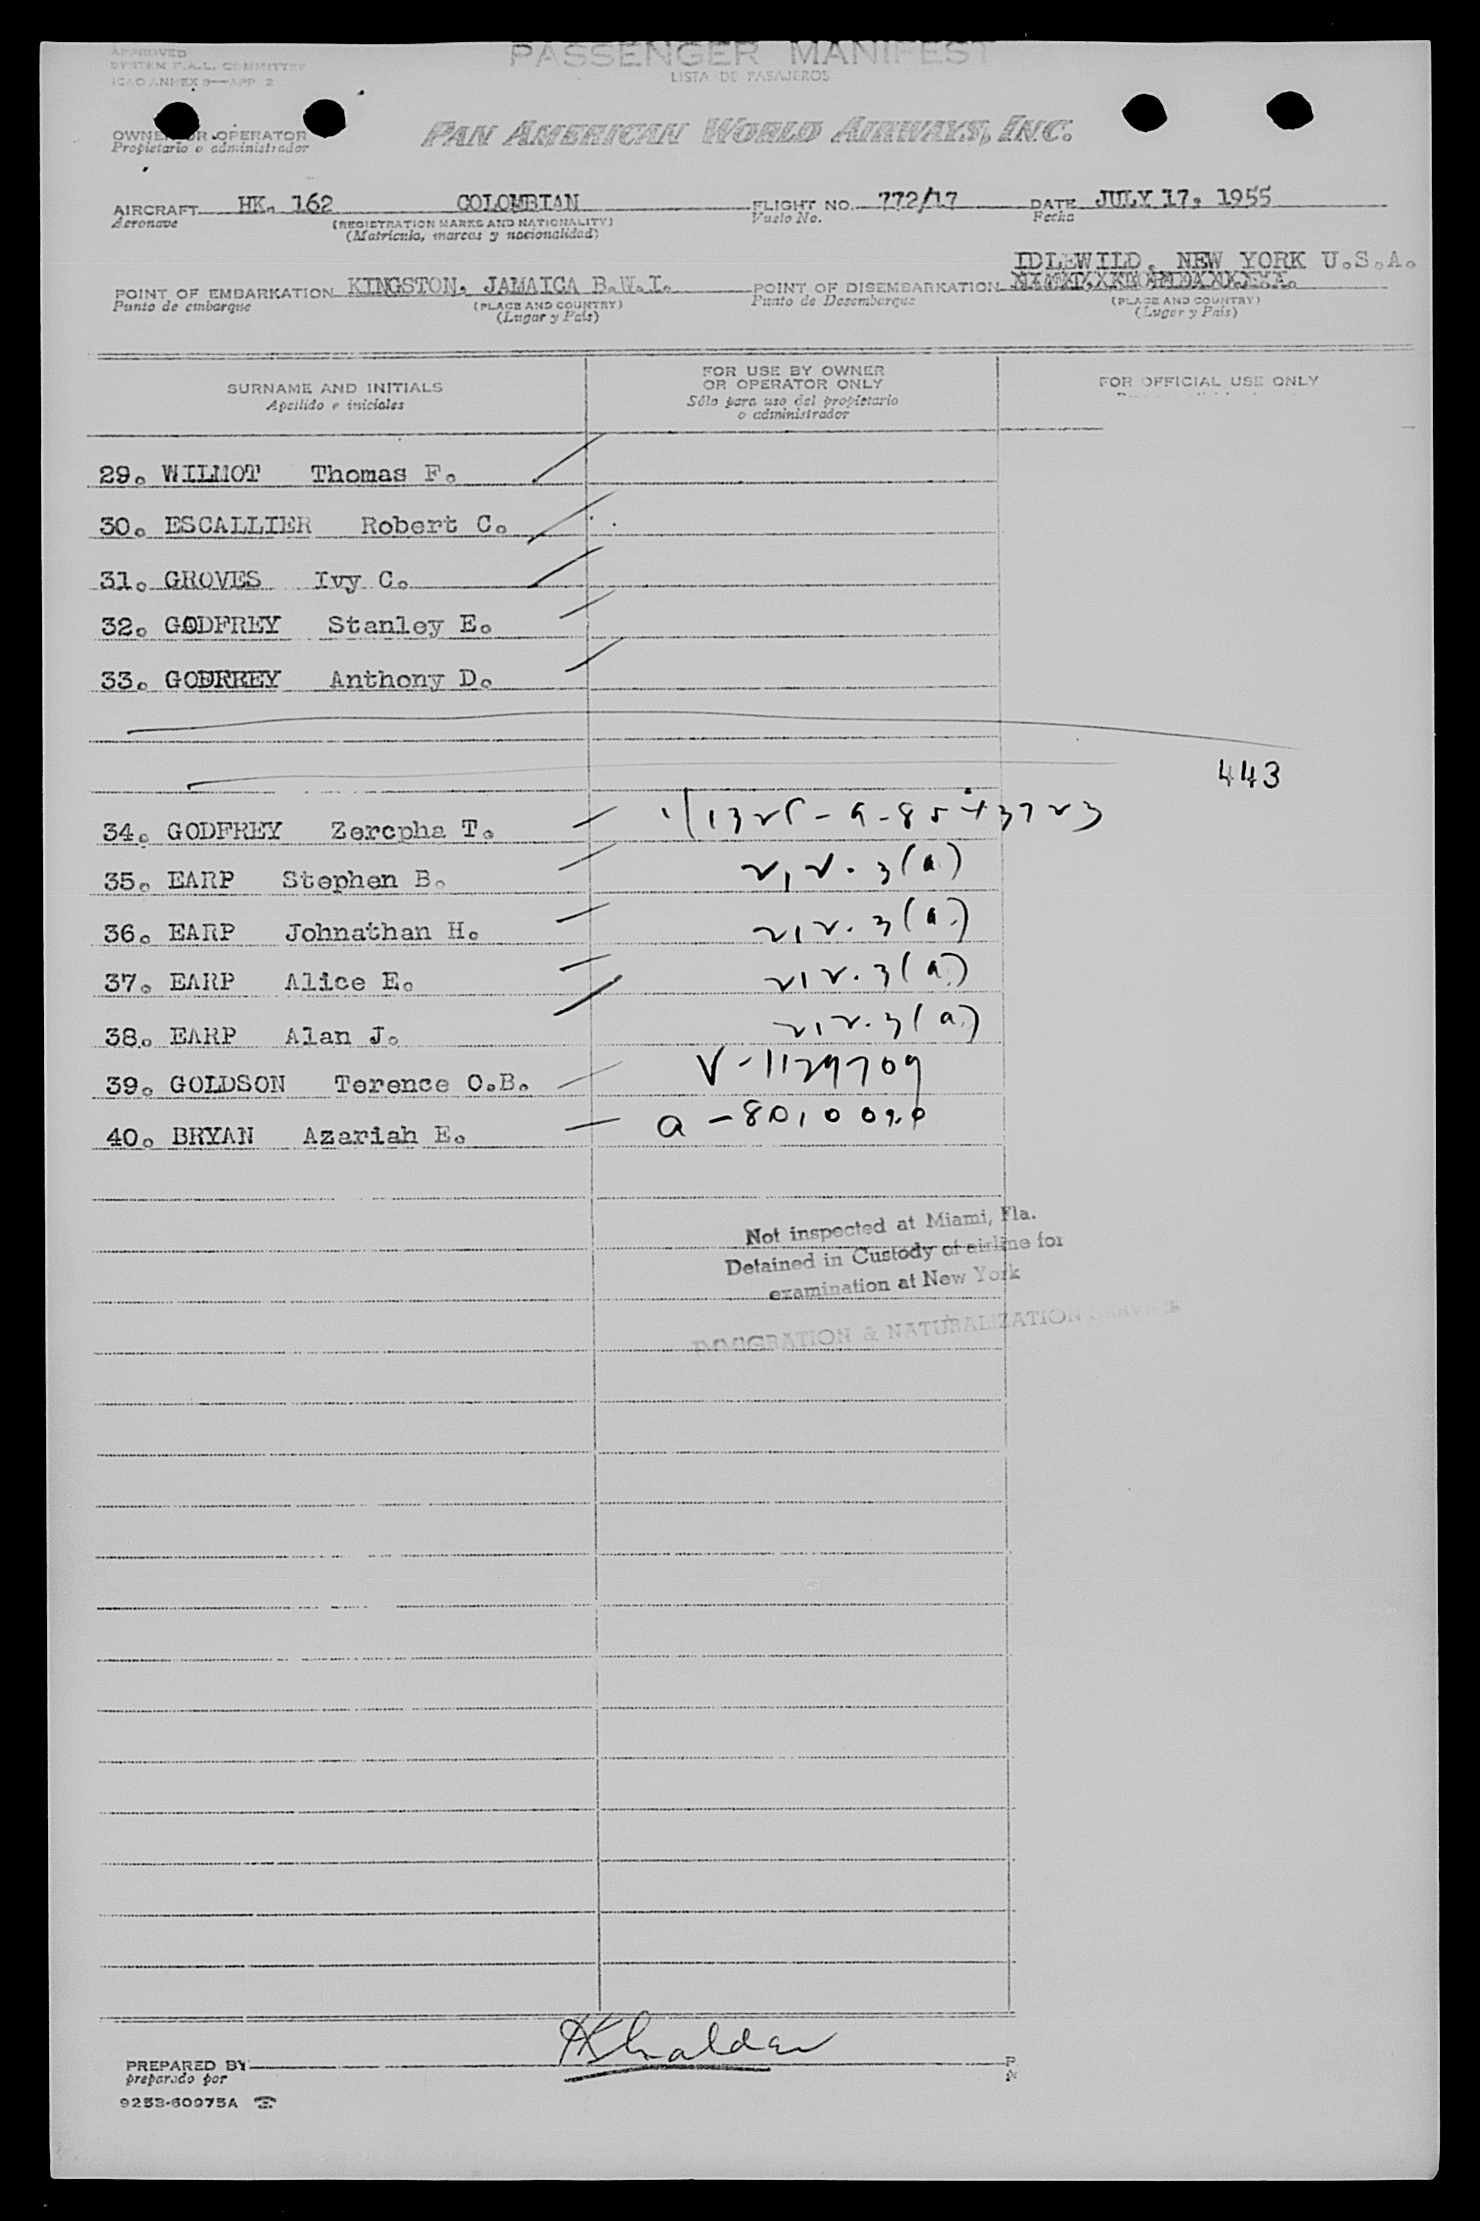 APPROVED
SYSTEM F.A.L. COMMITTEE
ICAO ANNEX 9—APP 2
PASSENGER MANIFEST
LISTA DE PASAJEROS
OWNER OR OPERATOR
Propietario o administrador
PAN AMERICAN WORLD AIRWAYS, INC.
AIRCRAFT HK. 162 COLOMBIAN FLIGHT NO. 772/17 DATE JULY 17, 1955
Aeronave (REGISTRATION MARKS AND NATIONALITY) Vuelo No. Fecha
(Matrícula, marcas y nacionalidad)
IDLEWILD, NEW YORK U.S.A.
POINT OF EMBARKATION KINGSTON, JAMAICA B.W.I. POINT OF DISEMBARKATION
Punto de embarque (PLACE AND COUNTRY) Punto de Desembarque (PLACE AND COUNTRY)
(Lugar y País) (Lugar y País)
SURNAME AND INITIALS
Apellido e iniciales
FOR USE BY OWNER
OR OPERATOR ONLY
Sólo para uso del propietario
o administrador
FOR OFFICIAL USE ONLY
29. WILMOT Thomas F.
30. ESCALLIER Robert C.
31. GROVES Ivy C.
32. GODFREY Stanley E.
33. GODFREY Anthony D.
443
34. GODFREY Zercpha T.
35. EARP Stephen B. v1v. 3(a)
36. EARP Johnathan H. v1v. 3(a)
37. EARP Alice E. v1v. 3(a)
38. EARP Alan J. v1v. 3(a)
39. GOLDSON Terence O.B. V-1129709
40. BRYAN Azariah E.
Not inspected at Miami, Fla.
Detained in Custody of airline for
examination at New York
IMMIGRATION & NATURALIZATION SERVICE
PREPARED BY
preparado por
9253-60975A